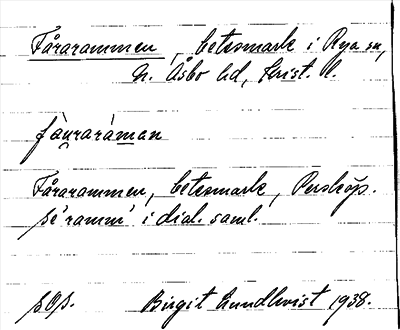 Fårarammen, betesmark i Rya sn,
N. Åsbo hd, Krist. l.
fàu̯raráman
Fårarammen, betesmark, Perstorp.
se ramm i dial. saml.
Birgit Lundkvist 1938.